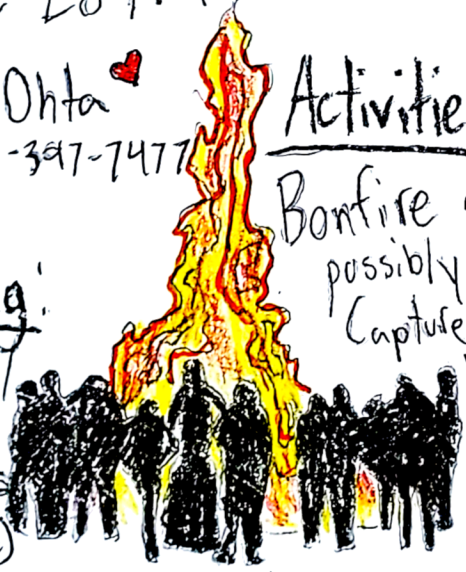 Ohta
-397-7477
Activitie
Bonfire
possibly
Capture